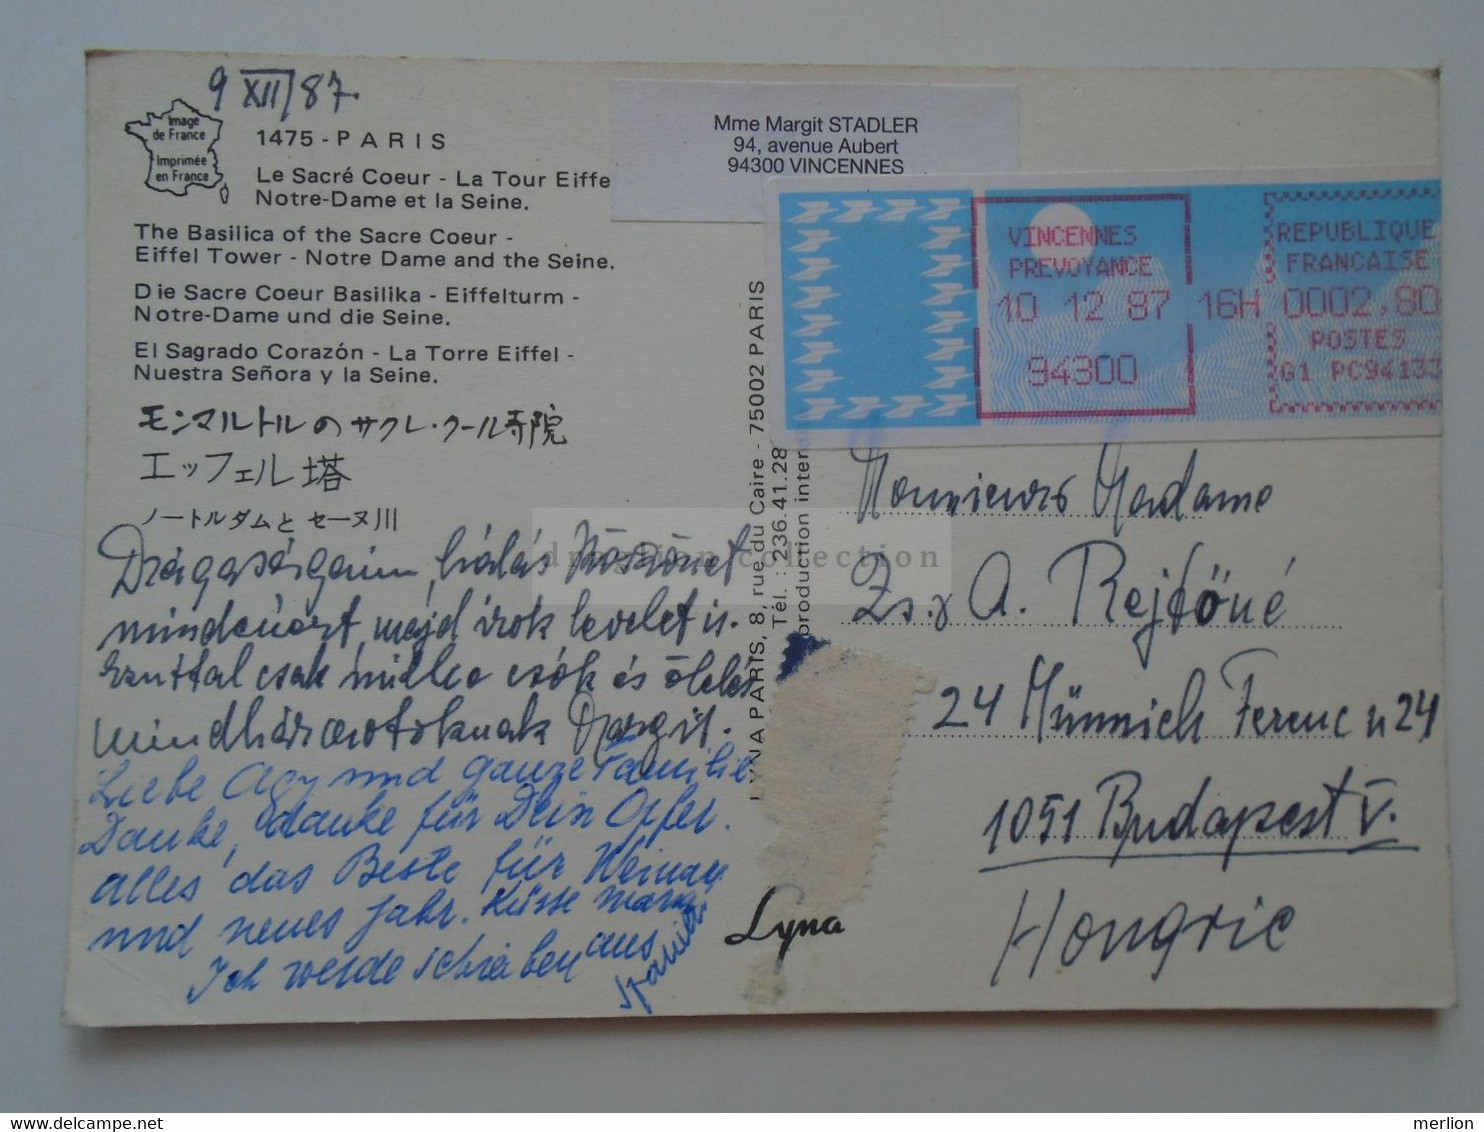 9 XII/87.
Image
de France
Imprimée
en France
1475 - PARIS
Le Sacré Coeur - La Tour Eiffe
Notre-Dame et la Seine.
The Basilica of the Sacre Coeur -
Eiffel Tower - Notre Dame and the Seine.
Die Sacre Coeur Basilika - Eiffelturm -
Notre-Dame und die Seine.
El Sagrado Corazón - La Torre Eiffel -
Nuestra Señora y la Seine.
モンマルトルのサクレ・クール寺院
エッフェル塔
ノートルダムとセーヌ川
Drágaságaim, hálás köszönet
mindenért, majd írok levelet is.
Ezuttal csak millió csók és ölelés
mindhármotoknak Margit.
Liebe Agy und ganze Familie
Danke, danke für Dein Opfer.
alles das Beste für Weinay
und neues Jahr. Küsse Maria
Ich werde schreiben aus
Spanien
LYNA PARIS, 8, rue du Caire - 75002 PARIS
Tél. : 236.41.28
production inter
Lyna
Mme Margit STADLER
94, avenue Aubert
94300 VINCENNES
VINCENNES
PREVOYANCE
10 12 87 16H
94300
REPUBLIQUE
FRANCAISE
0002,80
POSTES
G1 PC94133
Monsieurs Madame
Zs. y A. Rejtőné
24 Münnich Ferenc u 24
1051 Budapest V.
Hongrie
draglian collection
www.delcampe.net
merlion